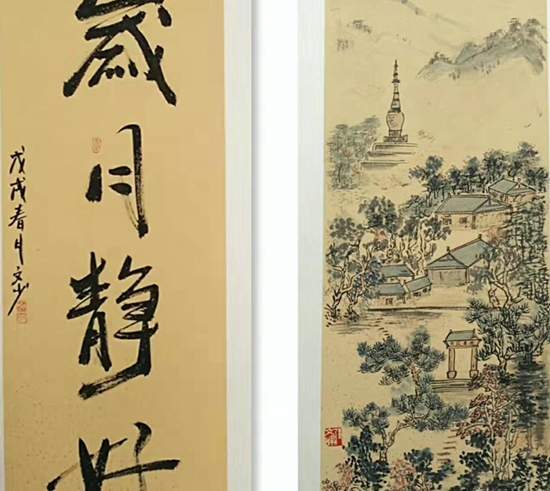 歲月靜好
戊戌春月文少